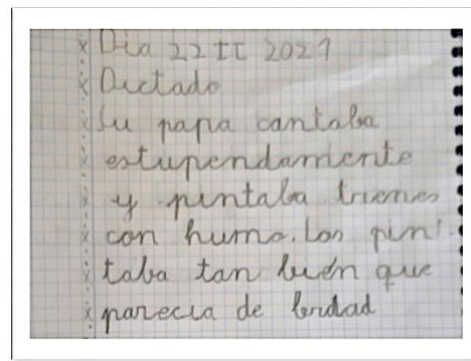 Dia 22 II 2021
Dictado
Su papa cantaba
estupendamente
y pintaba trenes
con humo. Los pin
taba tan buén que
parecia de berdad